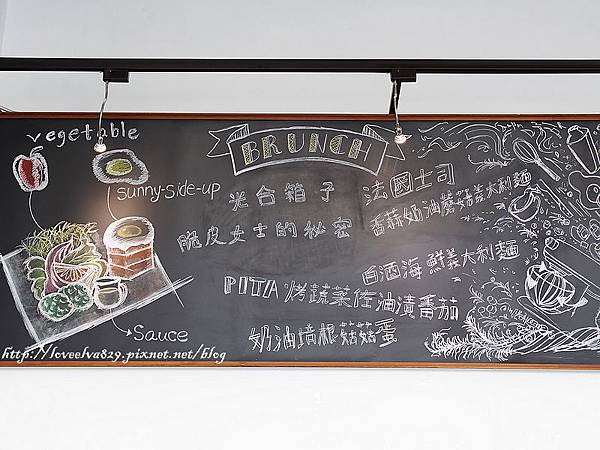 vegetable
sunny-side-up
Sauce
BRUNCH
光合箱子
脆皮女士的秘密
法國土司
香蒜奶油蘑菇義大利麵
白酒海鮮義大利麵
PITA 烤蔬菜佐油漬番茄
奶油培根菇菇蛋
http://loveelva829.pixnet.net/blog